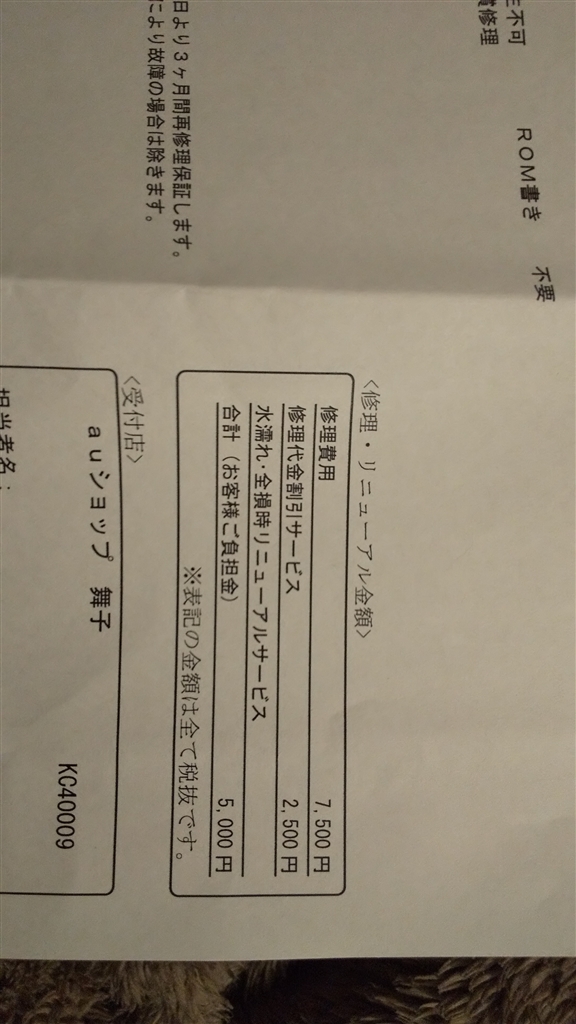 生不可
償修理
ROM書き 不要
日より3ヶ月間再修理保証します。
により故障の場合は除きます。
<修理・リニューアル金額>
修理費用 7,500円
修理代金割引サービス 2,500円
水濡れ・全損時リニューアルサービス
合計（お客様ご負担金） 5,000円
※表記の金額は全て税抜です。
<受付店>
auショップ 舞子
KC40009
担当者名：